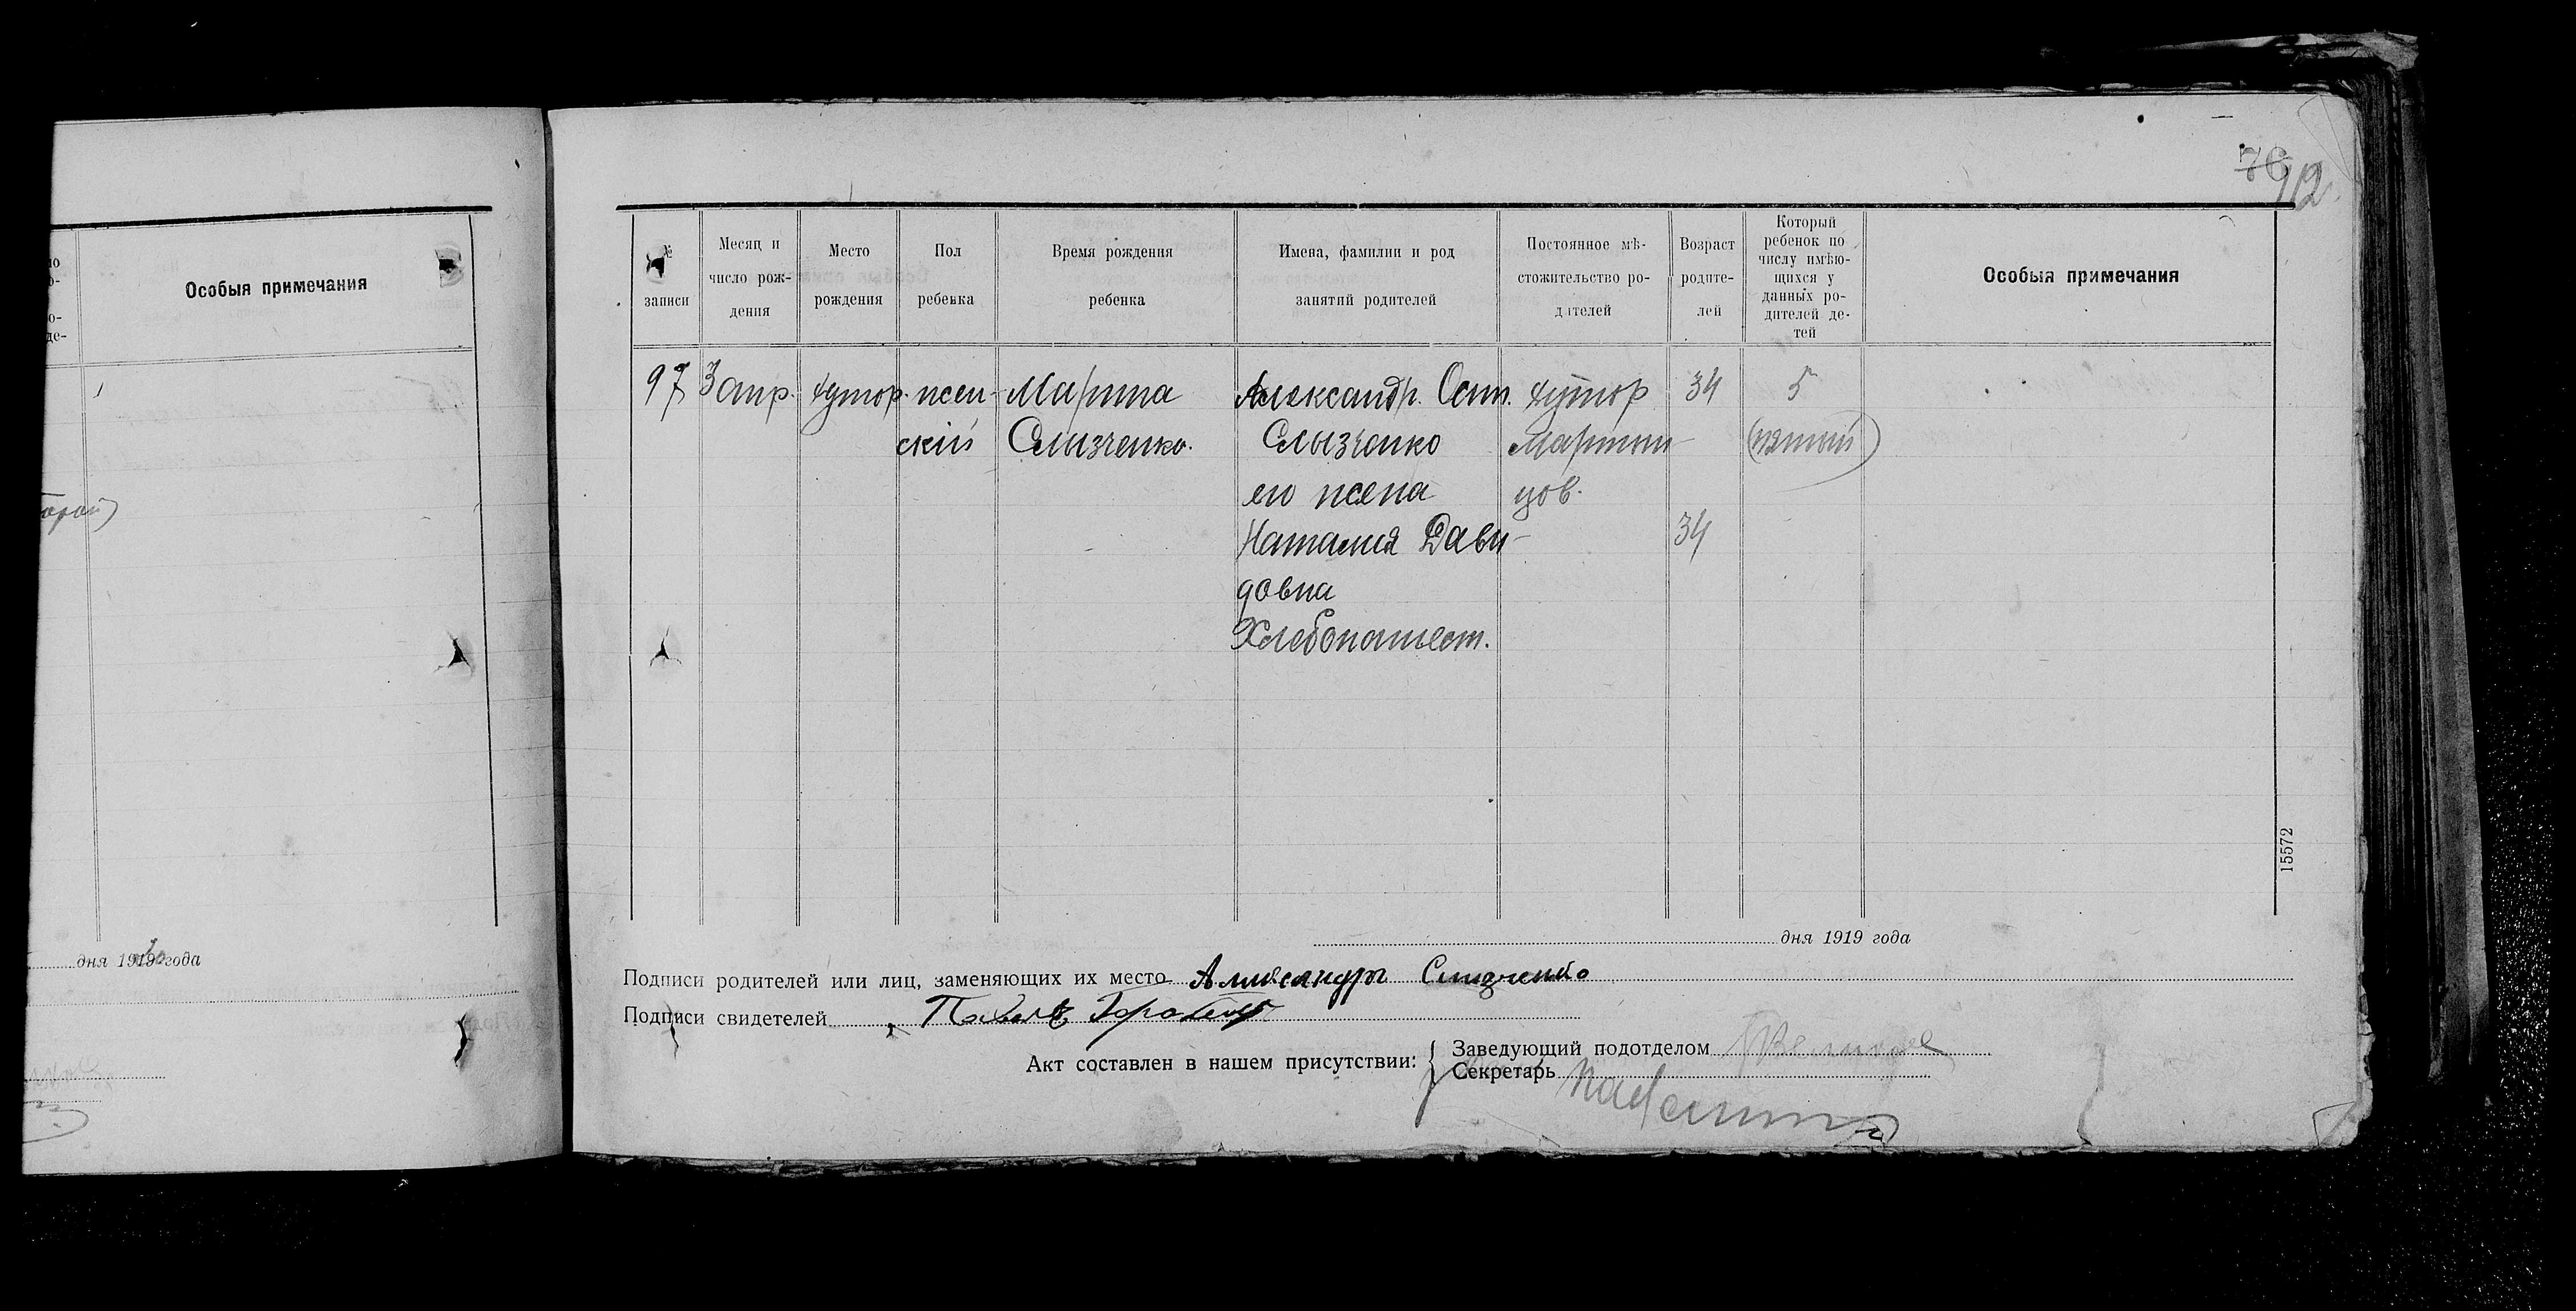 Особыя примечания
торой)
дня 1919 года
76
92
№ записи
Месяц и число рождения
Место рождения
Пол ребенка
Время рождения ребенка
Имена, фамилии и род занятий родителей
Постоянное мѣстожительство родителей
Возраст родителей
Который ребенок по числу имѣющихся у данных родителей детей
Особыя примечания
97 3 апр. хутор. жен- Марина Александр. Ост. хутор 34 5
ский Слизченко. Слызченко Мартын- (пятый)
его жена цов.
Наталия Дави- 34
довна
Хлебопашест.
15572
дня 1919 года
Подписи родителей или лиц, заменяющих их место Александръ Слизченко
Подписи свидетелей Павелъ
Акт составлен в нашем присутствии: Заведующий подотделом
Секретарь